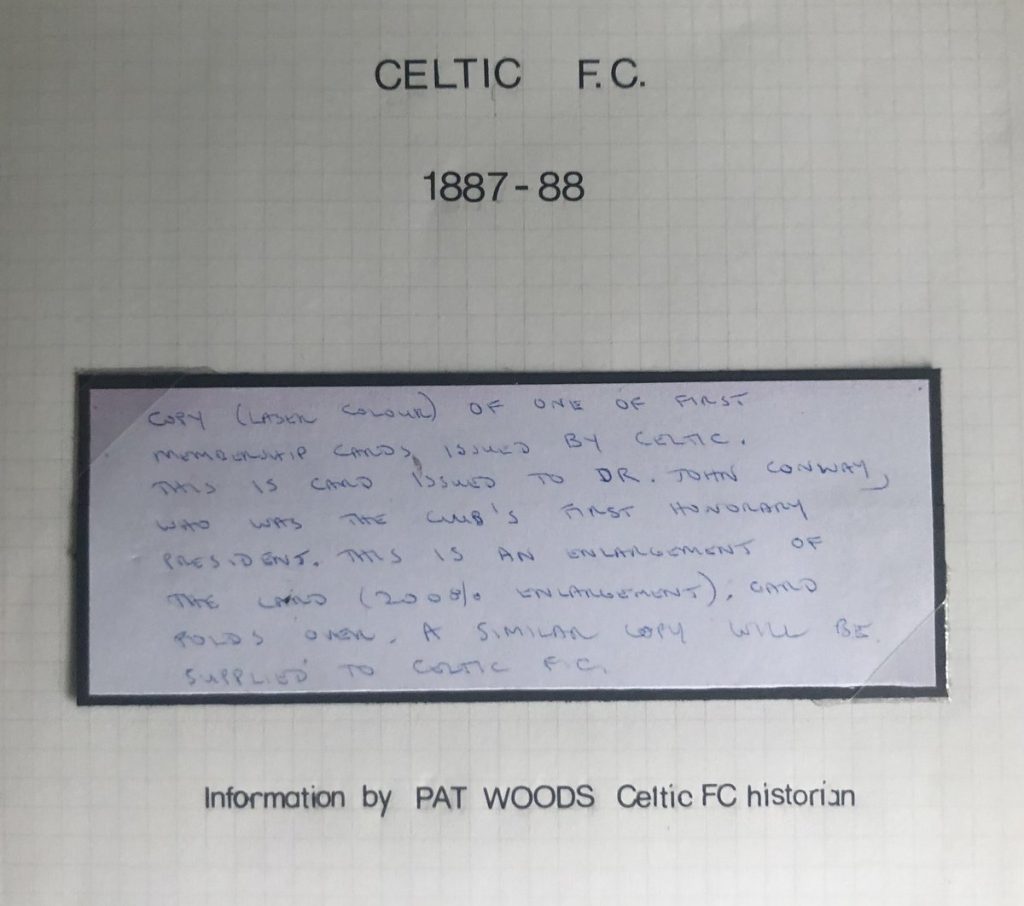 CELTIC F.C.
1887-88
COPY (LASER COLOUR) OF ONE OF FIRST
MEMBERSHIP CARDS ISSUED BY CELTIC.
THIS IS CARD ISSUED TO DR. JOHN CONWAY,
WHO WAS THE CLUB'S FIRST HONORARY
PRESIDENT. THIS IS AN ENLARGEMENT OF
THE CARD (200% ENLARGEMENT). CARD
FOLDS OVER. A SIMILAR COPY WILL BE
SUPPLIED TO CELTIC F.C.
Information by PAT WOODS Celtic FC historian